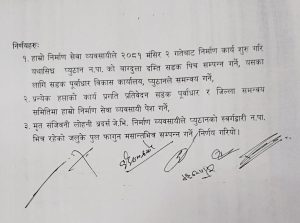 निर्णयहरुः
१. हाम्रो निर्माण सेवा व्यवसायीले २०८१ मंसिर २ गतेबाट निर्माण कार्य शुरु गरि
यथासिघ्र प्यूठान न.पा. को बाग्दुला दस्ति सडक पिच सम्पन्न गर्ने, यसका
लागि सडक पूर्वाधार विकास कार्यालय, प्यूठानले समन्वय गर्ने,
२. प्रत्येक हप्ताको कार्य प्रगति प्रतिवेदन सडक पूर्वाधार र जिल्ला समन्वय
समितिमा हाम्रो निर्माण सेवा व्यवसायी पेश गर्ने,
३. मुल संजिवनी लोहनी ब्रदर्स जे.भि. निर्माण व्यवसायीले प्यूठानको स्वर्गद्वारी न.पा.
भित्र रहेको जलुके पुल फागुन मसान्तभित्र सम्पन्न गर्ने निर्णय गरियो।